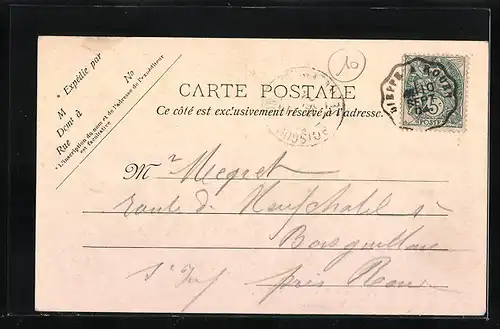 * Expédie par
M
Demt à
Rue No
* L'inscription du nom et de l'adresse de l'expéditeur
est facultative
10
CARTE POSTALE
Ce côté est exclusivement réservé à l'adresse.
DIEPPE A ROUEN
10
SEPT
5
POSTES
Mr Megret
route de Neufchatel à
Boisguillaume
S. Inf près Rouen